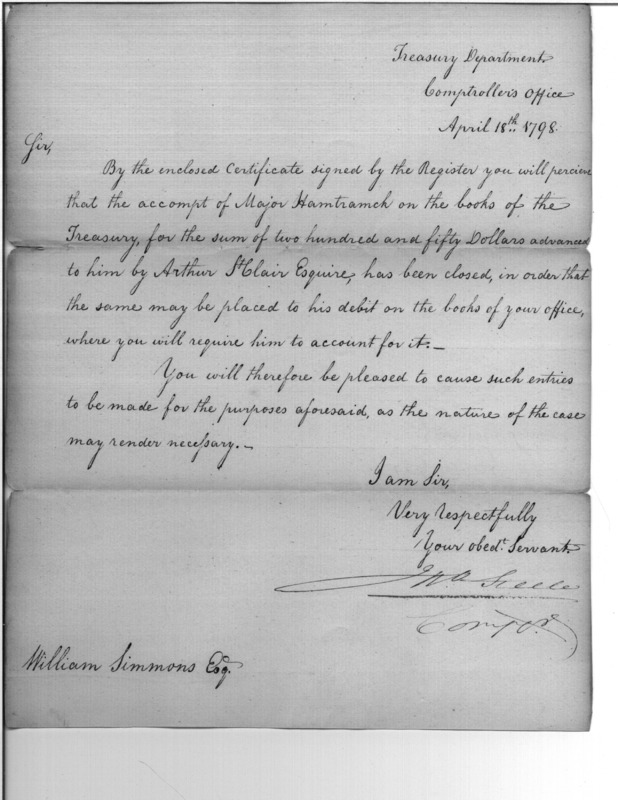 Treasury Department
Comptroller's Office
April 18th. 1798.
Sir,
By the enclosed Certificate signed by the Register you will percieve
that the accompt of Major Hamtramck on the books of the
Treasury, for the sum of two hundred and fifty Dollars advanced
to him by Arthur St Clair Esquire, has been closed, in order that
the same may be placed to his debit on the books of your office,
where you will require him to account for it.—
You will therefore be pleased to cause such entries
to be made for the purposes aforesaid, as the nature of the case
may render necessary.—
I am Sir,
Very respectfully
Your obedt. Servant.
Jno Steele
Compr.
William Simmons Esq.